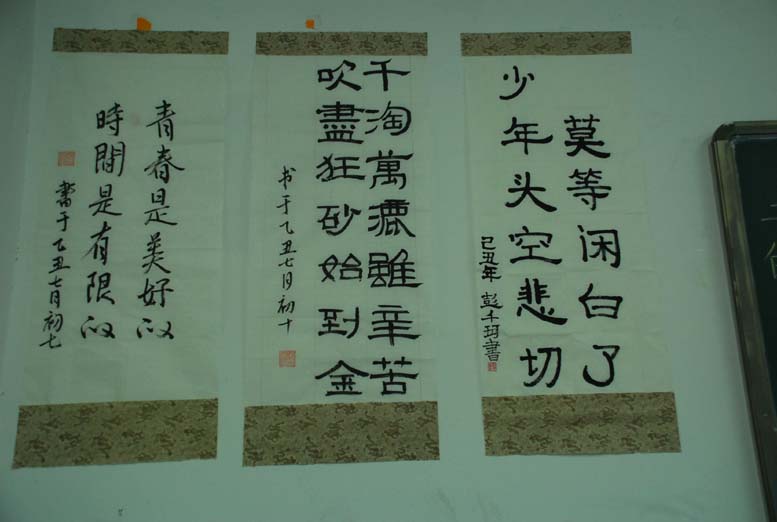 莫等闲白了
少年头空悲切
己丑年 彭千珂書
千淘萬漉雖辛苦
吹盡狂砂始到金
书于乙丑七月初十
青春是美好的
時間是有限的
書于乙丑七月初七